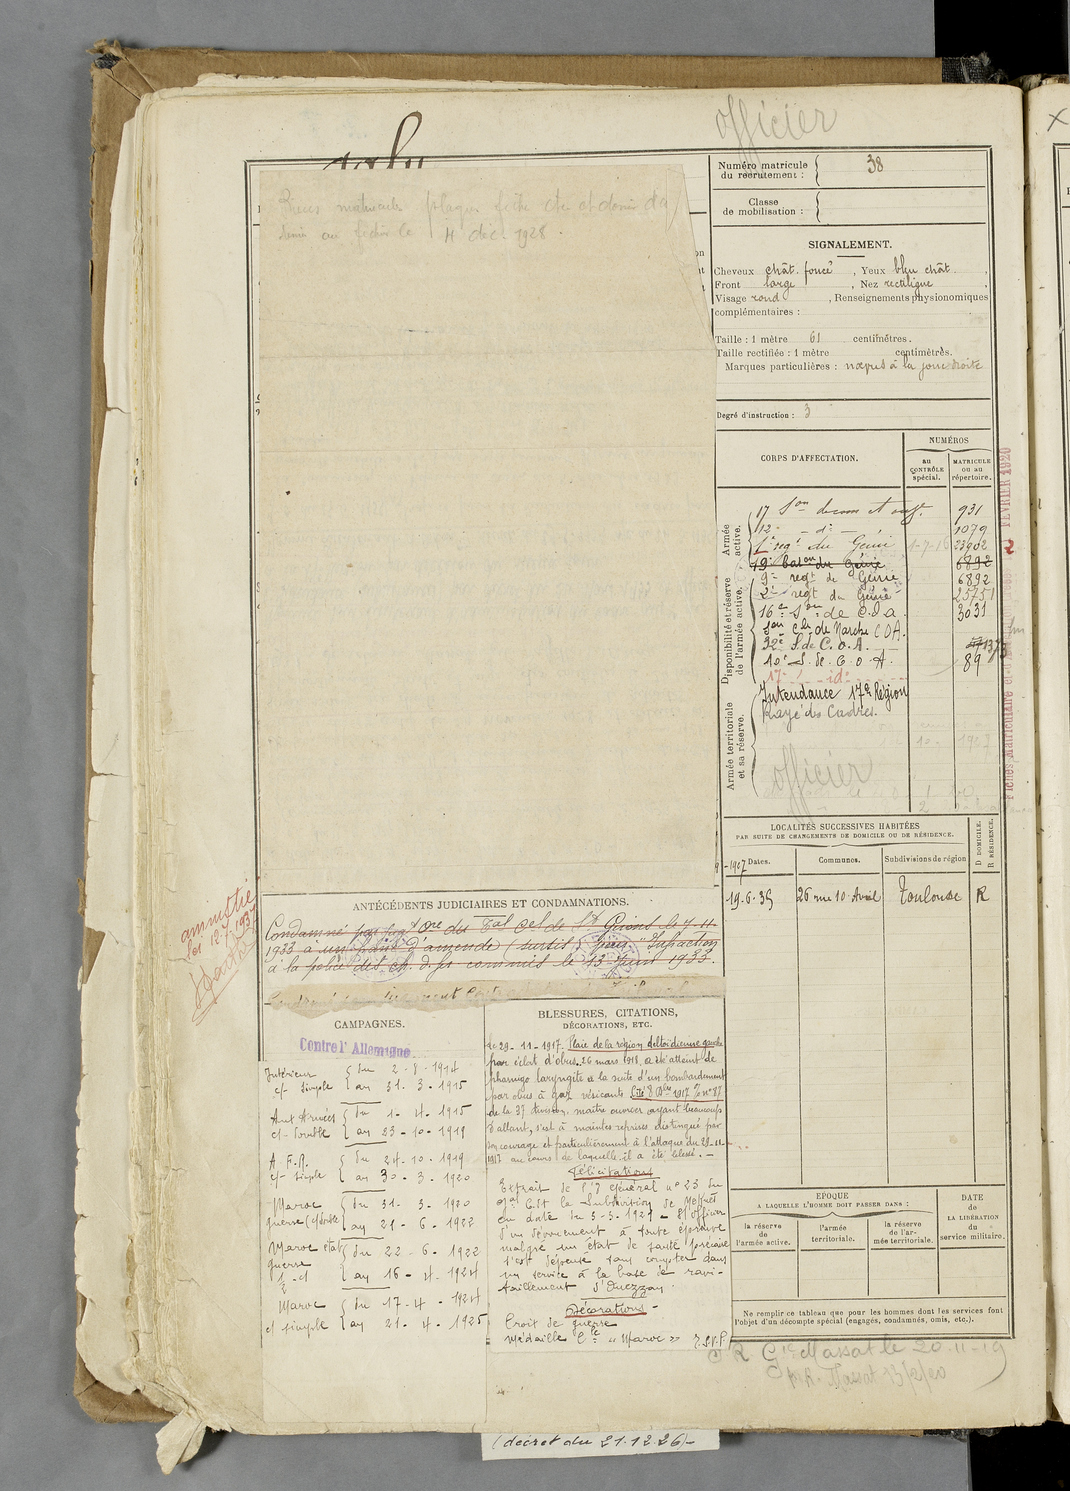 officier
Numéro matricule
du recrutement :
38
Classe
de mobilisation :
matricule plaque fiche
au fichier le 4 déc. 1928.
SIGNALEMENT.
Cheveux chât. foncé, Yeux bleu chât.,
Front large, Nez rectiligne,
Visage rond, Renseignements physionomiques
complémentaires :
Taille : 1 mètre 61 centimètres.
Taille rectifiée : 1 mètre centimètres.
Marques particulières : nœvus à la joue droite
Degré d'instruction : 3
CORPS D'AFFECTATION.
NUMÉROS
au
CONTRÔLE
spécial.
MATRICULE
ou au
répertoire.
Armée
active.
Disponibilité et réserve
de l'armée active.
Armée territoriale
et sa réserve.
17 Son de com et ouv. 931
12e - do - 1079
1er régt du Génie 1-7-16 23902
19e baton du Génie 6892
9e régt de Génie 6892
2e régt du Génie 25751
16e Son de C.O.A. 3031
Son Cle de Marche C.O.A.
32e S. de C.O.A. 1373
10e S. de C.O.A. 89
17e id
Intendance 17e Région
Rayé des Cadres.
officier
FÉVRIER 1920
LOCALITÉS SUCCESSIVES HABITÉES
PAR SUITE DE CHANGEMENTS DE DOMICILE OU DE RÉSIDENCE.
D DOMICILE.
R RÉSIDENCE.
Dates.
Communes.
Subdivisions de région
19.6.35 26 rue 10 Avril Toulouse R
ANTÉCÉDENTS JUDICIAIRES ET CONDAMNATIONS.
Condamné par jugt du Tal Cel de St Girons le 7-11-
1933 à un franc d'amende (sursis) pour Infraction
à la police des ch. de fer commis le 13 Juin 1933.
amnistié
Loi 12.7.1937
CAMPAGNES.
Contre l'Allemagne
Intérieur
c/ simple
du 2-8-1914
au 31-3-1915
Aux Armées
c/ double
du 1-4-1915
au 23-10-1919
A.F.N.
c/ simple
du 24-10-1919
au 30-3-1920
Maroc
guerre c/ double
du 31-3-1920
au 21-6-1922
Maroc état
guerre
du 22-6-1922
au 16-4-1924
Maroc
c/ simple
du 17-4-1924
au 21-4-1925
BLESSURES, CITATIONS,
DÉCORATIONS, ETC.
Le 29-11-1917. Plaie de la région deltoïdienne gauche
par éclat d'obus. 26 mars 1918, a été atteint de
pharyngo laryngite à la suite d'un bombardement
par obus à gaz vésicants. Cité 8 Xbre 1917 n° 87
de la 37 division. maître ouvrier ayant beaucoup
d'allant, s'est à maintes reprises distingué par
son courage et particulièrement à l'attaque du 29-11-
1917 au cours de laquelle il a été blessé. -
Félicitations
Extrait de l'O Général n° 23 du
Gal Ct la Subdivision de Meknès
en date du 5-5-1921 - Officier
d'un dévouement à toute épreuve
malgré un état de santé précaire
s'est dépensé sans compter dans
un service à la base de ravi-
taillement d'Ouezzan.
Décorations -
Croix de guerre
Médaille Cle "Maroc"
(décret du 21.12.26)-
ÉPOQUE
A LAQUELLE L'HOMME DOIT PASSER DANS :
la réserve
de
l'armée active.
l'armée
territoriale.
la réserve
de l'ar-
mée territoriale.
DATE
de
LA LIBÉRATION
du
service militaire.
Ne remplir ce tableau que pour les hommes dont les services font
l'objet d'un décompte spécial (engagés, condamnés, omis, etc.).
Massat le 20-11-19
Massat